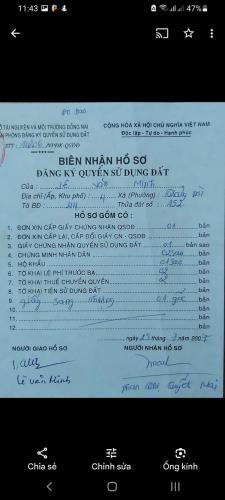 11:43
47%
Đo Đạc
SỞ TÀI NGUYÊN VÀ MÔI TRƯỜNG ĐỒNG NAI
VĂN PHÒNG ĐĂNG KÝ QUYỀN SỬ DỤNG ĐẤT
CỘNG HÒA XÃ HỘI CHỦ NGHĨA VIỆT NAM
Độc lập - Tự do - Hạnh phúc
BIÊN NHẬN HỒ SƠ
ĐĂNG KÝ QUYỀN SỬ DỤNG ĐẤT
Của : Lê Văn Minh
Địa chỉ (Ấp, Khu phố) : 4 Xã (Phường)
Tờ BĐ : Thửa đất số : 152
HỒ SƠ GỒM CÓ :
1. ĐƠN XIN CẤP GIẤY CHỨNG NHẬN QSDĐ 01 bản
2. ĐƠN XIN CẤP LẠI, CẤP ĐỔI GIẤY CN - QSDĐ bản
3. GIẤY CHỨNG NHẬN QUYỀN SỬ DỤNG ĐẤT 01 bản sao
4. CHỨNG MINH NHÂN DÂN 02 sao bản
5. HỘ KHẨU 01 sao bản
6. TỜ KHAI LỆ PHÍ TRƯỚC BẠ 02 bản
7. TỜ KHAI THUẾ CHUYỂN QUYỀN 02 bản
8. TỜ KHAI TIỀN SỬ DỤNG ĐẤT bản
9. giấy sang nhượng 01 gốc bản
10. bản
11. bản
12. bản
ngày 23 tháng 3 năm 200
NGƯỜI GIAO HỒ SƠ NGƯỜI NHẬN HỒ SƠ
Lê Văn Minh
Chia sẻ Chỉnh sửa Ống kính